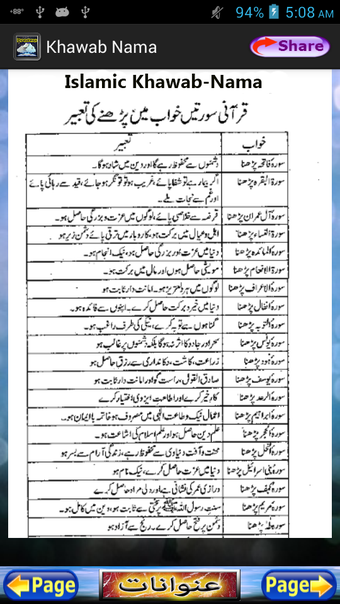 94% 5:08 AM
Khawab Nama
Share
Islamic Khawab-Nama
قرآنی سورتیں خواب میں پڑھنے کی تعبیر
خواب تعبیر
سورۃ فاتحہ پڑھنا دشمنوں سے محفوظ رہے گا اور دین میں شاد ہوگا۔
سورۃ البقرہ پڑھنا اگر بیمار ہے تو شفا پائے، غریب ہو تو تونگر ہو جائے، قید سے رہائی پائے
اور غم سے نجات ملے۔
سورۃ آل عمران پڑھنا قرضہ سے خلاصی پائے، لوگوں میں عزت و بزرگی حاصل ہو۔
سورۃ النساء پڑھنا اہل و عیال میں برکت ہو، کاروبار میں ترقی پائے، دشمن زیر ہو
سورۃ المائدہ پڑھنا دنیا میں عزت اور بزرگی حاصل ہو، نیک انجام ہو۔
سورۃ الانعام پڑھنا مویشی حاصل ہوں اور مال میں برکت ہو۔
سورۃ الاعراف پڑھنا لوگوں میں ہر دلعزیز ہو۔ امانت دار ثابت ہو
سورۃ انفال پڑھنا دنیا میں خیر و برکت حاصل کرے۔ اپنوں سے فائدہ ہو۔
سورۃ التوبہ پڑھنا گناہوں سے توبہ کرے، نیکی کی طرف راغب ہو۔
سورۃ یونس پڑھنا سحر اور جادو کا اثر نہ ہوگا بلکہ دشمنوں پر غالب ہو
سورۃ ہود پڑھنا زراعت، کاشت، دکانداری سے رزق حاصل ہو
سورۃ یوسف پڑھنا صادق القول، راست گو اور امانت دار ثابت ہو
سورۃ الرعد پڑھنا کار خیر کرے اور اطاعت ایزدی اختیار کرے
سورۃ ابراہیم پڑھنا اعمال نیک و طاعت الٰہی میں مصروف ہو خاتمہ باایمان ہو۔
سورۃ الحجر پڑھنا علم دین حاصل ہو اور علم اسلام کی اشاعت ہو۔
سورۃ النحل پڑھنا محنت و آفت دنیاوی سے محفوظ رہے، زندگی آرام سے بسر ہو
سورۃ بنی اسرائیل پڑھنا دنیا میں عزت حاصل کرے، نیک نام ہو
سورۃ کہف پڑھنا درازی عمر کی نشانی ہے اور دلی مراد حاصل کرے
سورۃ مریم پڑھنا سنت رسول اللہ ﷺ پر ثابت ہو، دین میں کامل ہو۔
سورۃ طٰہٰ پڑھنا دشمن پر فتح حاصل کرے۔ رنج سے آزاد ہو
Page عنوانات Page